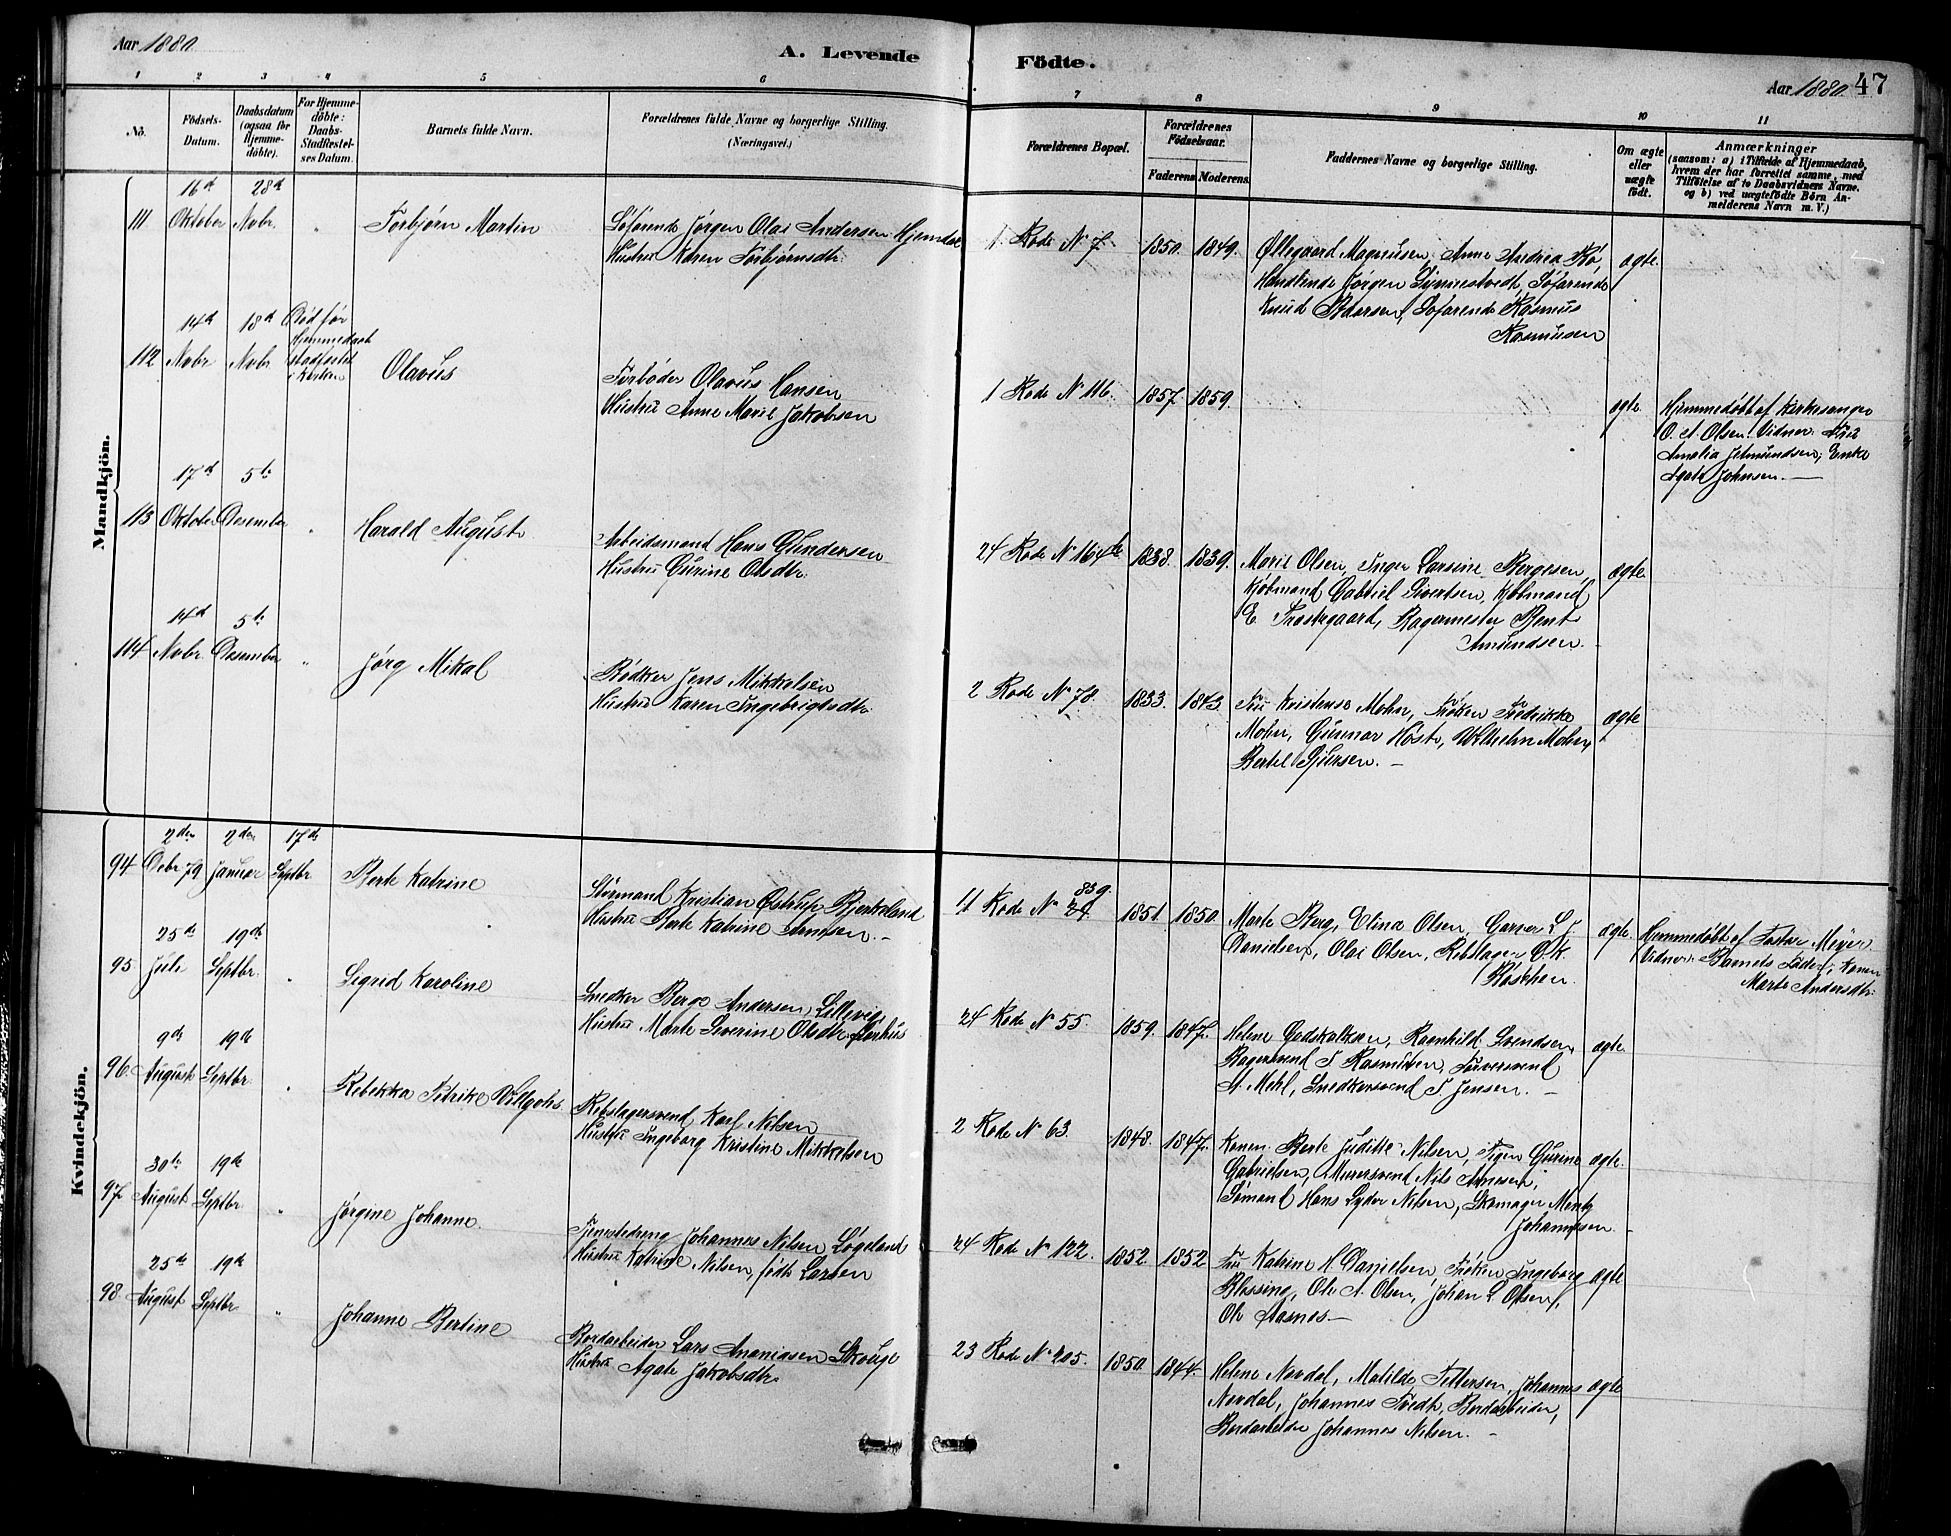 Aar 1880.
A. Levende
Födte.
Aar 1880. 47
1 2 3 4 5 6 7 8 9 10 11
No. Födsels-Datum. Daabsdatum (ogsaa for Hjemmedöbte). For Hjemmedöbte: Daabs-Stadfestelses Datum. Barnets fulde Navn. Forældrenes fulde Navne og borgerlige Stilling. (Næringsvei.)
Forældrenes Bopæl. Forældrenes Födselsaar. Faderens Moderens. Faddernes Navne og borgerlige Stilling. Om ægte eller uægte födt. Anmærkninger (saasom: a) i Tilfælde af Hjemmedaab, hvem der har forrettet samme, med Tilföielse af to Daabsvidners Navne, og b) ved uægtefödte Börn Anmelderens Navn m. V.)
Mandkjön.
16d 28d
111 Oktober Novbr. " Torbjørn Martin
Søfarende Jørgen Olai Andersen Hjemdal
Hustru Karen Torbjørnsdtr.
1 Rode N 7. 1850. 1849.
Øllegaard Magnusen, Anne Andrea Bø,
Handlende Jørgen Synnestvedt, Søfarende
Knud Pedersen, Søfarende Rasmus
Rasmusen
ægte.
14d 18d Død før
Hjemmedaab
stadfestet
i Kirken
112 Novbr Novbr Olavus
Førbøder Olavus Hansen
Hustru Anne Marie Jakobsen
1 Rode N 116. 1857. 1859.
ægte.
Hjemmedøbt af Kirkesanger
O. A. Olsen. Vidner: Frü
Amalia Jelmundsen, Enke
Agate Johnsen. —
17d 5te
113 Oktober Desember " Harald August
Arbeidsmand Hans Gundersen
Hustru Gurine Olsdtr.
24 Rode N 164b 1838. 1839.
Marie Olsen, Inger Larsine Bergesen,
Kjøbmand Gabriel Sivertsen, Kjøbmand
E. Trostegaard, Bagermester Bent
Amundsen. —
ægte.
14d 5te
114 Novbr. Desember " Jørg Mikal
Bødker Jens Mikkelsen
Hustru Karen Ingebrigtsdtr.
2 Rode N 78. 1833. 1843.
Frü Kristense Mohn, Frøken Fredrikke
Mohn, Gunnar Høst, Wilhelm Mohn,
Bertel Sjursen. —
ægte
Kvindekjön.
2den 2den 17de
94 Debr 79 Januar Septbr Berte Katrine
Styrmand Kristian Østrup Bjerkeland
Hustru Berte Katrine Arnesen. —
11 Rode N 24 839. 1851. 1850.
Marte Berg, Elina Olsen, Garver L. J.
Danielsen, Olai Olsen, Rebslager O. K.
Røschen.
ægte.
Hjemmedøbt af Pastor Meyer.
Vidner: Barnets Fader, Konen
Marte Andersdtr.
25de 19de
95 Juli Septbr. " Sigrid Karoline
Snedker Berge Andersen Lillevig
Hustru Marte Severine Olsdtr
24 Rode N 55. 1859. 1847.
Helene Godskalksen, Ragnhild Svendsen,
Bagersvend T. Rasmusen, Farversvend
A. Mehl, Snedkersvend T. Jensen. —
ægte.
9de 19de
96 August Septbr. " Rebekka Petrike
Rebslagersvend Karl Nilsen
Hustru Ingeborg Kristine Mikkelsen
2 Rode N 63. 1848. 1847.
Konen Berte Juditte Nilsen, Pigen Gurine
Gabrielsen, Murersvend Nils Arnesen,
Sømand Hans Lyder Nilsen, Skomager Mentz
Johannesen. —
ægte.
30te 19de
97 August Septbr " Jørgine Johanne.
Tjenestedreng Johannes Nilsen Løgeland
Hustru Katrine Nilsen, født Larsen
24 Rode N 122. 1852. 1852
Frü Katrine H. Danielsen, Frøken Ingeborg
Blessing, Ole A. Olsen, Johan L. Olsen,
Ole Aasnes —
ægte
25de 19de
98 August Septbr " Johanne Bertine
Bordarbeider Lars Ananiasen Skouge
Hustru Agate Jakobsdtr.
23 Rode N 205. 1850. 1844.
Helene Nordal, Matilde Pettersen, Johannes
Nordal, Johannes Tvedt, Bordarbeider,
Bordarbeider Johannes Nilsen. —
ægte